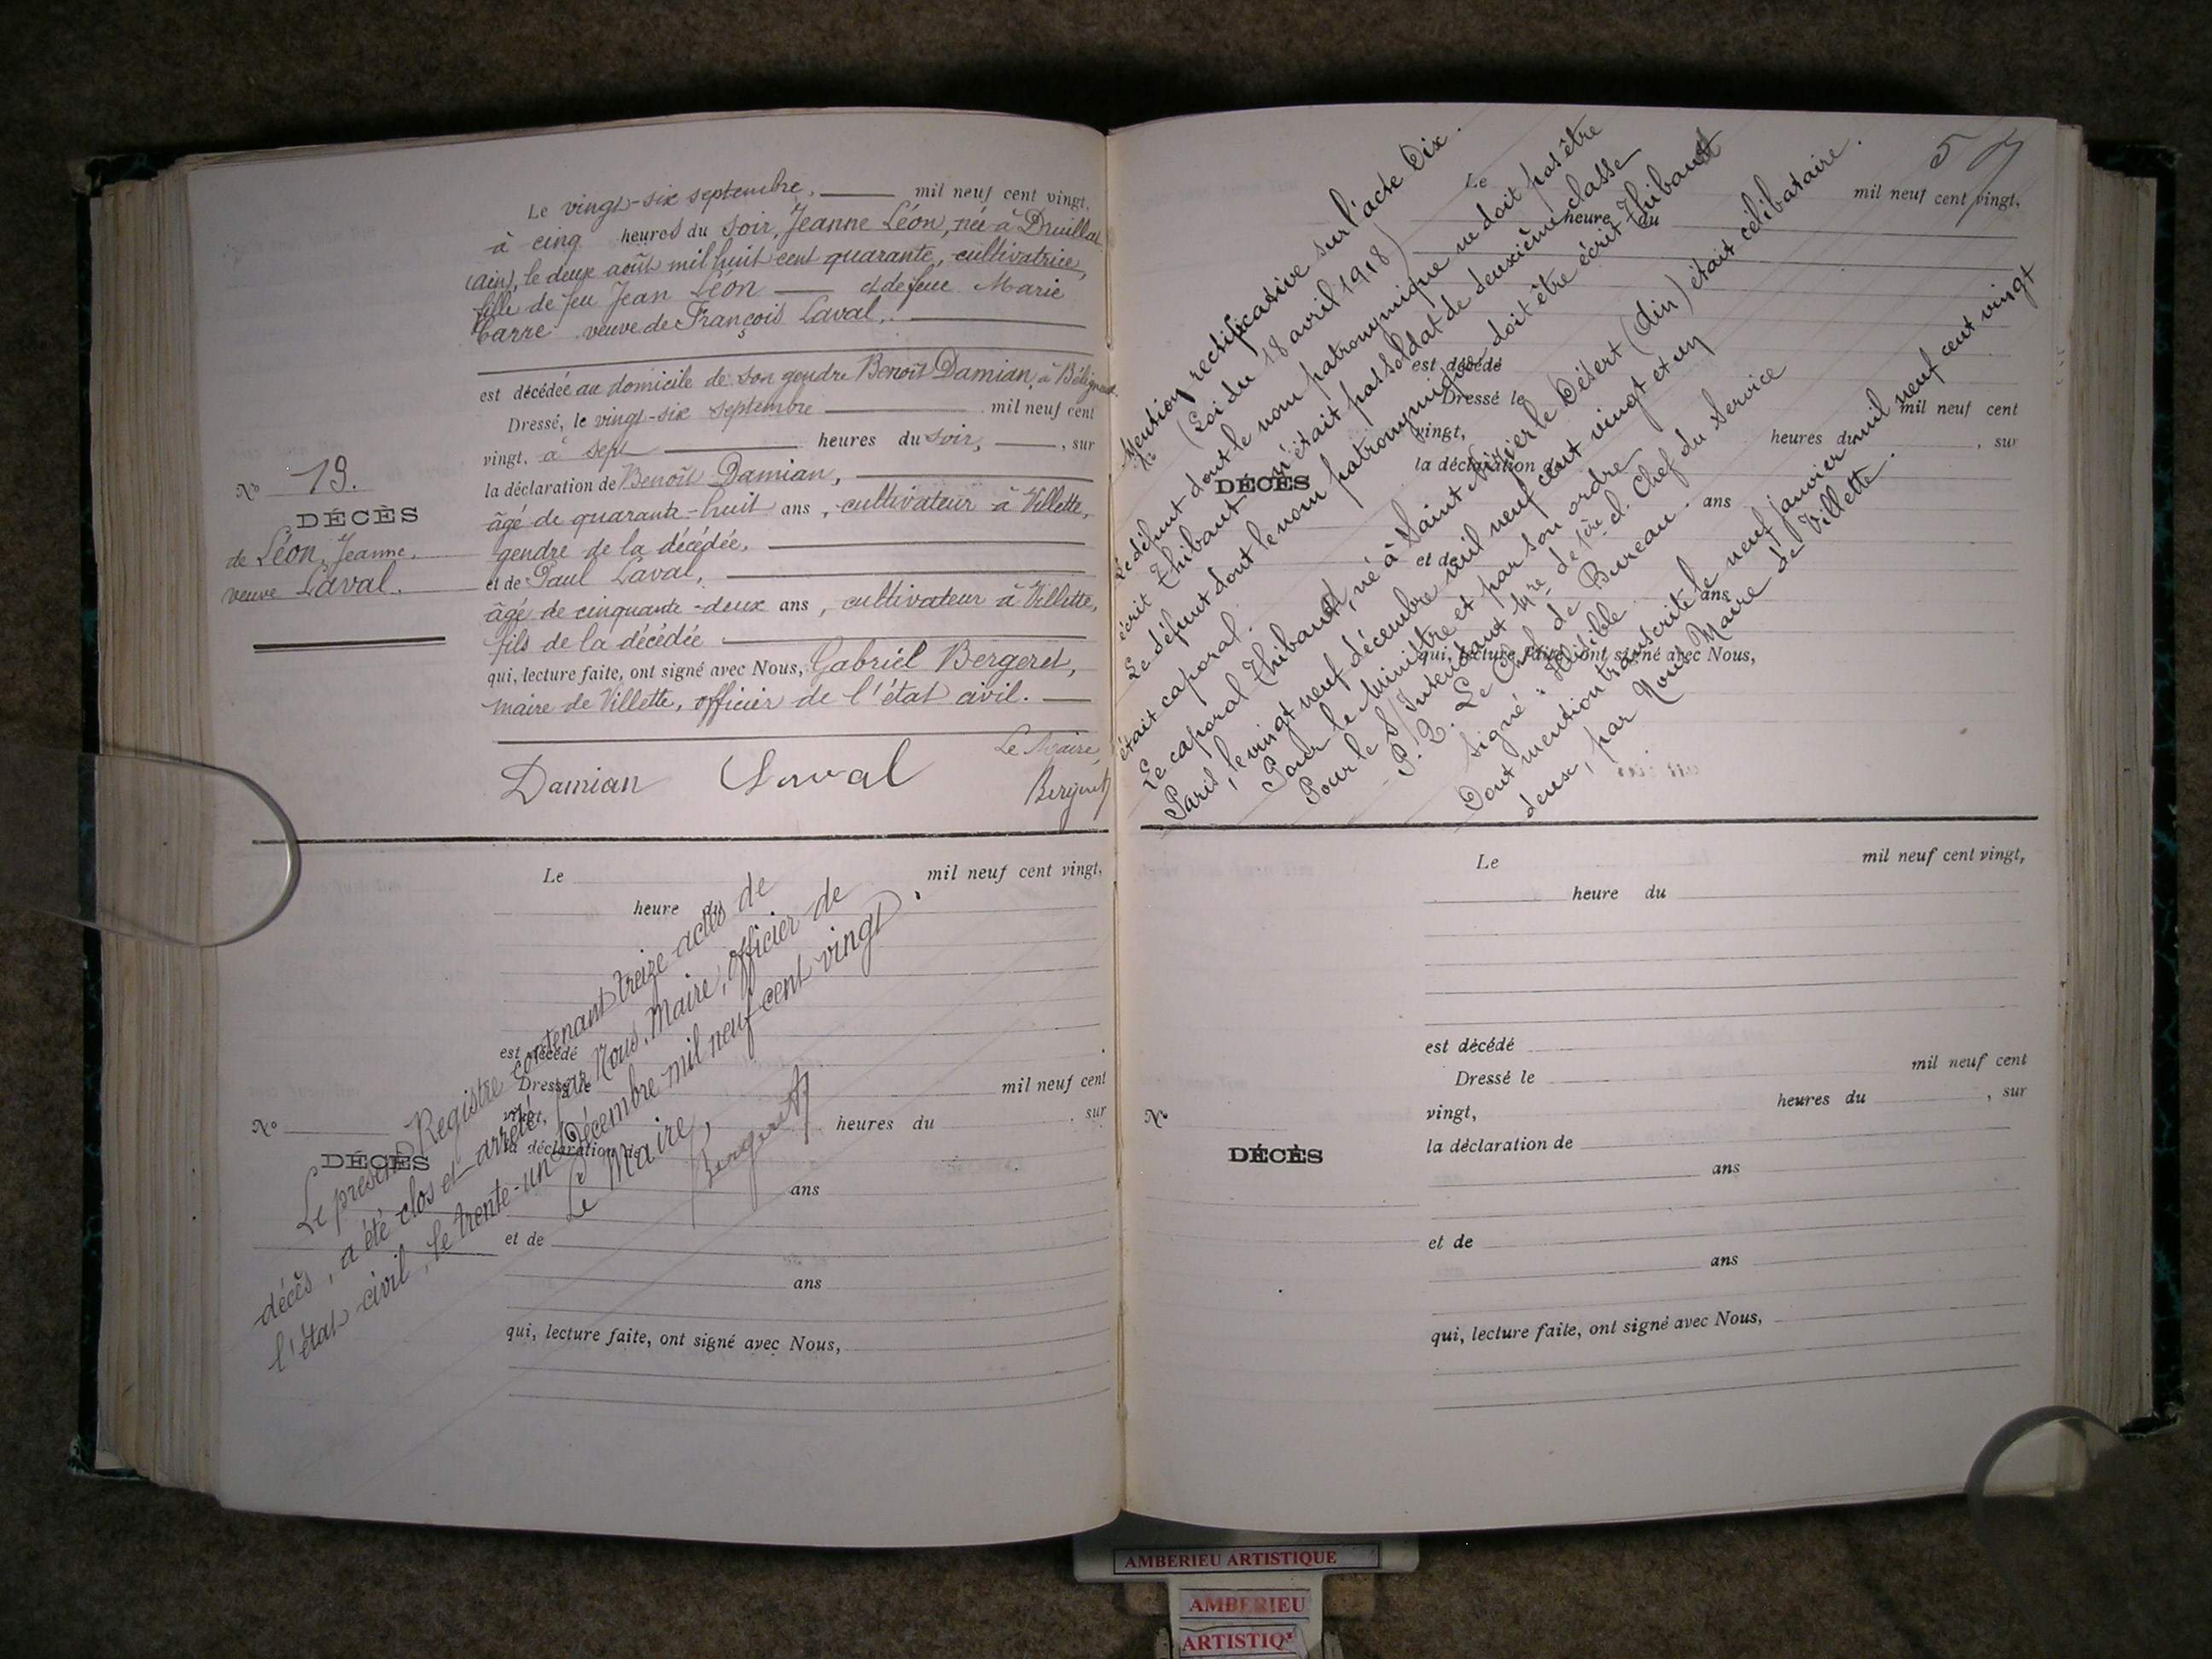 Le vingt-six septembre, mil neuf cent vingt,
à cinq heures du soir, Jeanne Léon, née à Druillat
(Ain), le deux août mil huit cent quarante, cultivatrice,
fille de feu Jean Léon et de feue Marie
Carre veuve de François Laval,
est décédée au domicile de son gendre Benoît Damian, à Béligneux
Dressé, le vingt-six septembre mil neuf cent
vingt, à sept heures du soir, sur
la déclaration de Benoît Damian,
âgé de quarante-huit ans, cultivateur à Villette,
gendre de la décédée,
et de Paul Laval,
âgé de cinquante-deux ans, cultivateur à Villette,
fils de la décédée
qui, lecture faite, ont signé avec Nous, Gabriel Bergeret,
maire de Villette, officier de l'état civil.
Le Maire,
Damian Laval Bergeret
No 13.
DÉCÈS
de Léon, Jeanne,
veuve Laval.
Le mil neuf cent vingt,
heure du
est décédé
Dressé le mil neuf cent
vingt, heures du , sur
la déclaration de
ans
et de
ans
qui, lecture faite, ont signé avec Nous,
No
DÉCÈS
Le présent Registre contenant treize actes de
décès, a été clos et arrêté par Nous, Maire, officier de
l'état civil, le trente-un Décembre mil neuf cent vingt.
Le Maire,
Bergeret
57
Le mil neuf cent vingt,
heure du
est décédé
Dressé le mil neuf cent
vingt, heures du , sur
la déclaration de
ans
et de
ans
qui, lecture faite, ont signé avec Nous,
No
DÉCÈS
Mention rectificative sur l'acte Dix.
(Loi du 18 avril 1918)
Le défunt dont le nom patronymique ne doit pas être
écrit Thibaut n'était pas soldat de deuxième classe
Le défunt dont le nom patronymique doit être écrit Thibault
était caporal.
Le caporal Thibault, né à Saint Nizier le Désert (Ain) était célibataire.
Paris, le vingt neuf décembre mil neuf cent vingt et un
Pour le Ministre et par son ordre
Pour le S/Intendant Mre de 1ère cl. Chef du Service
Le Chef de Bureau.
Signé : Illisible
Dont mention transcrite le neuf janvier mil neuf cent vingt
deux, par Nous Maire de Villette.
Le mil neuf cent vingt,
heure du
est décédé
Dressé le mil neuf cent
vingt, heures du , sur
la déclaration de
ans
et de
ans
qui, lecture faite, ont signé avec Nous,
No
DÉCÈS
AMBERIEU ARTISTIQUE
AMBERIEU
ARTISTIQ